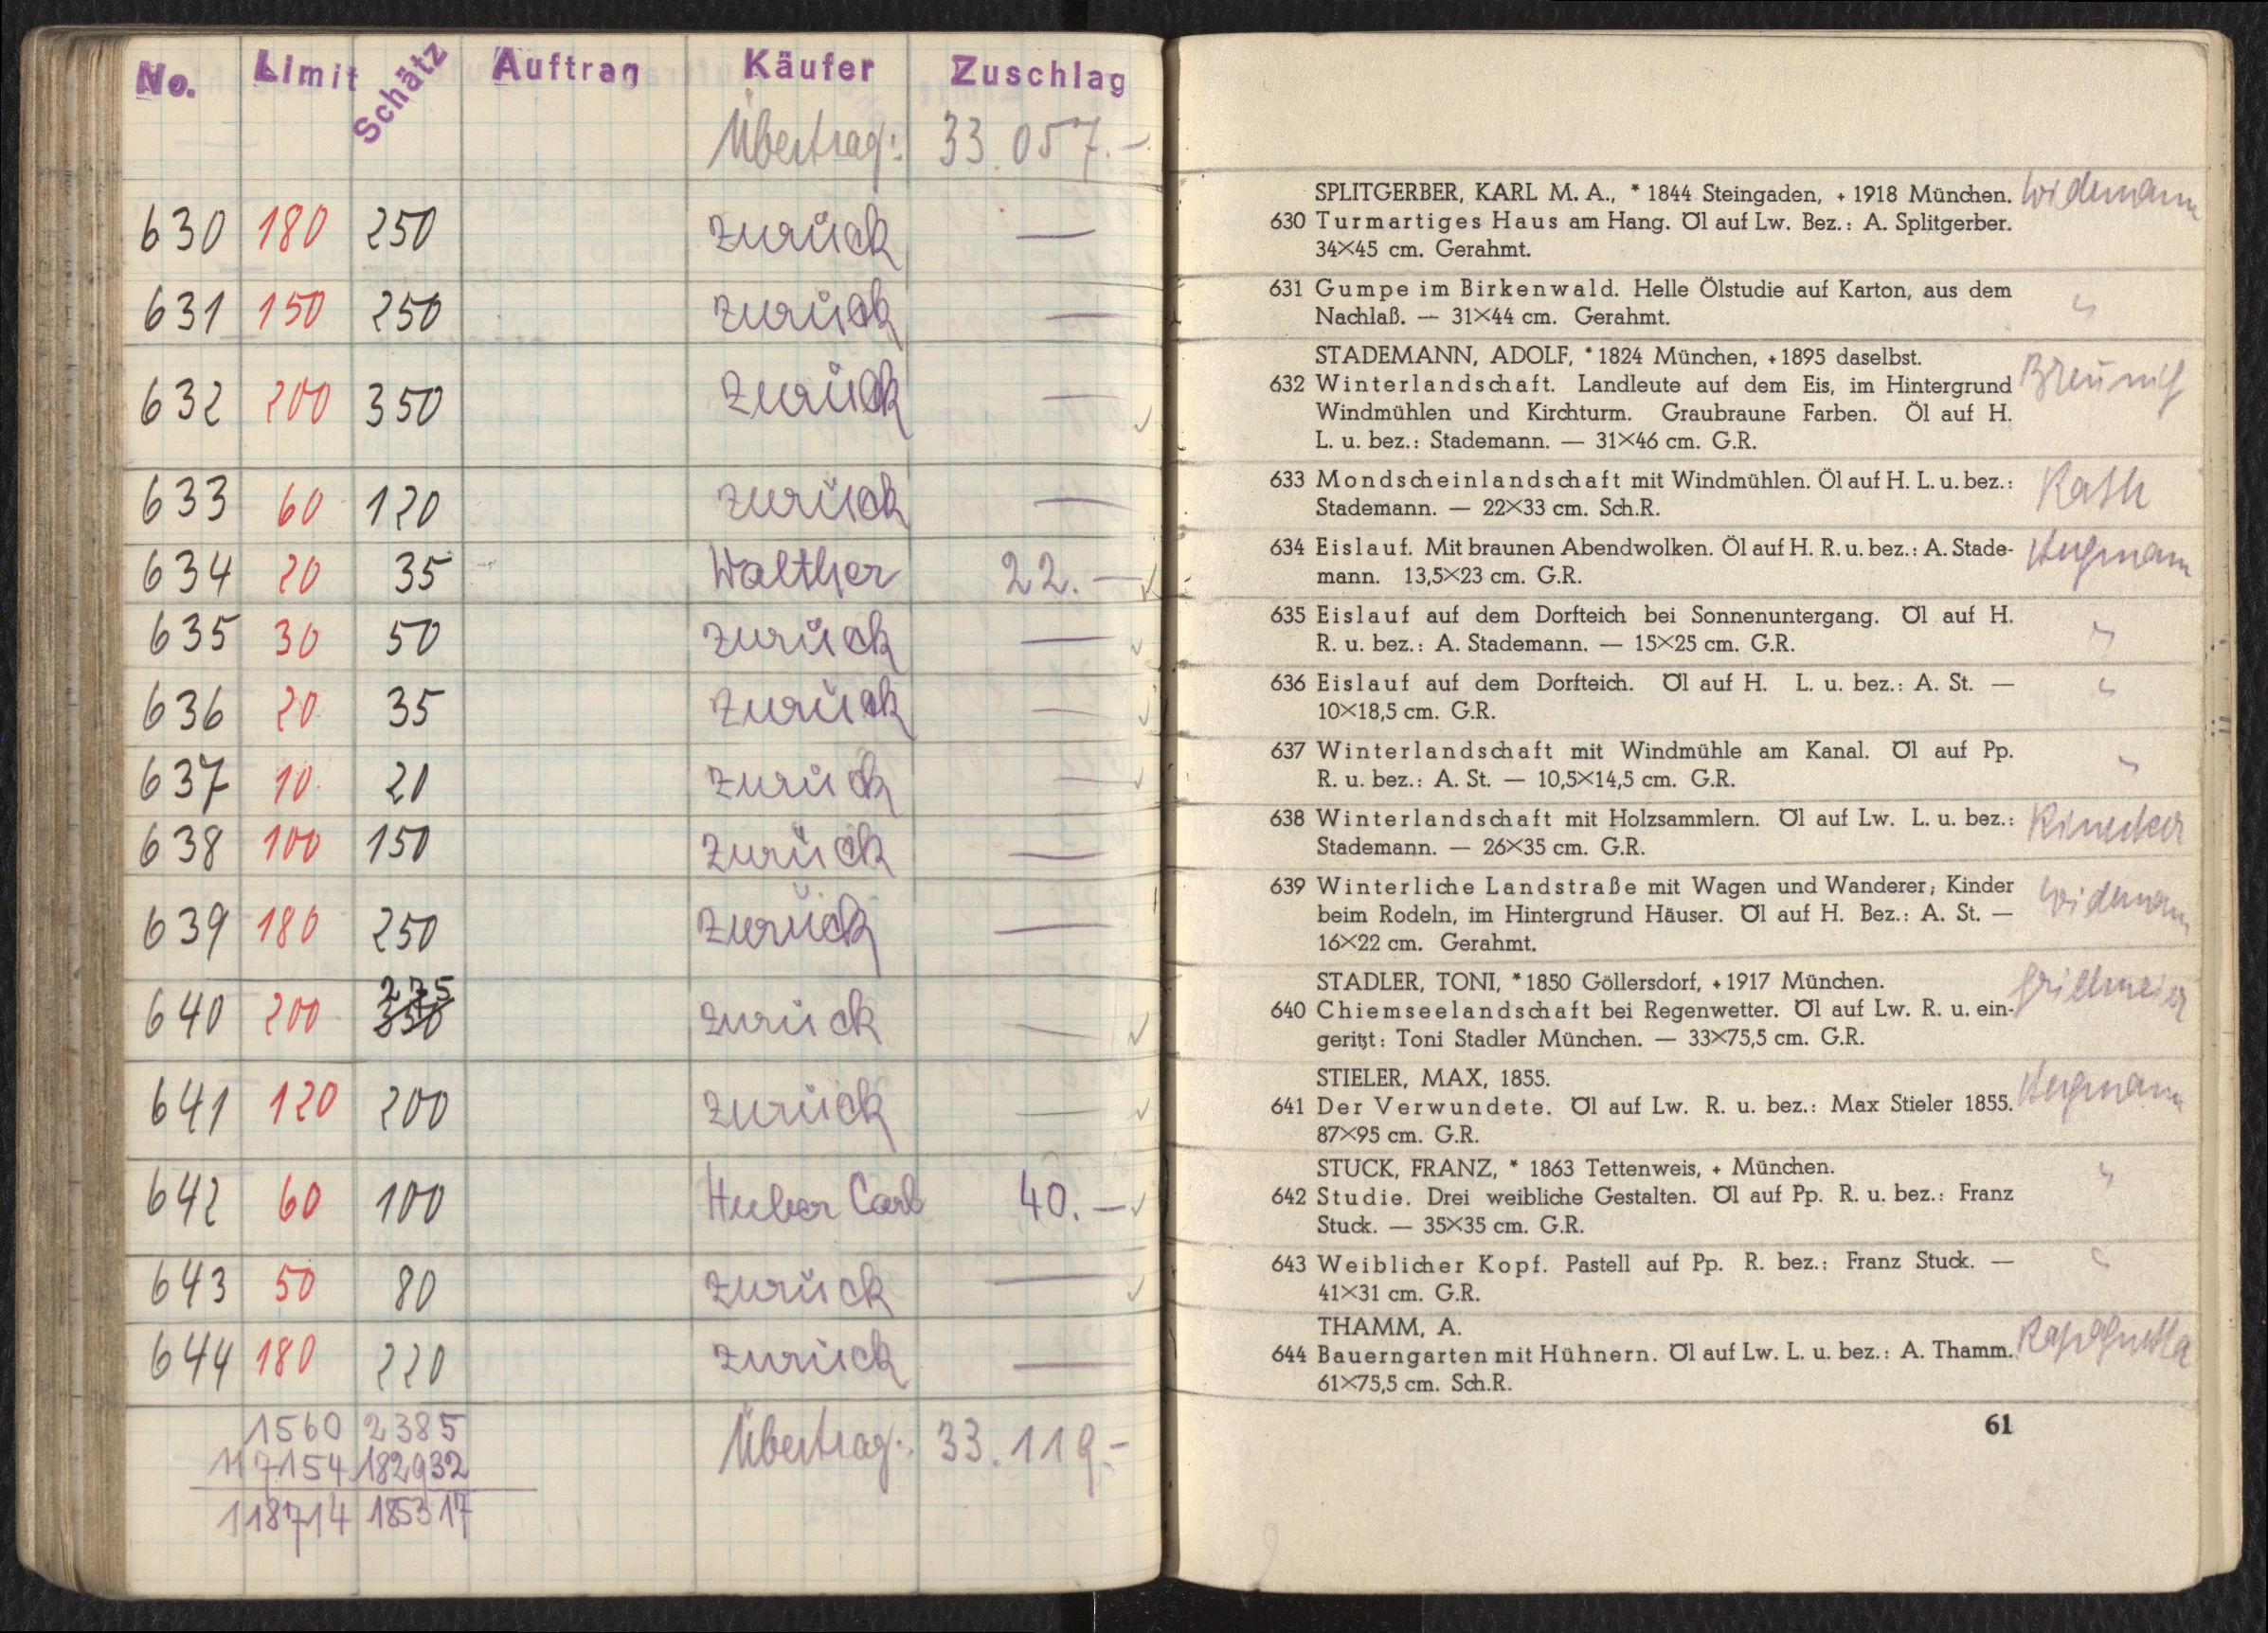 No. Limit Schätz Auftrag Käufer Zuschlag
Übertrag: 33.057.–
630 180 250 zurück —
631 150 250 zurück —
632 200 350 zurück —
633 60 120 zurück —
634 20 35 Walther 22.—
635 30 50 zurück —
636 20 35 zurück —
637 10 20 zurück —
638 100 150 zurück —
639 180 250 zurück —
640 200 350 275 zurück —
641 120 200 zurück —
642 60 100 Huber Carl 40.—
643 50 80 zurück —
644 180 220 zurück —
1560 2385 Übertrag: 33.119.–
117154 182932
118714 185317
SPLITGERBER, KARL M. A., * 1844 Steingaden, + 1918 München. Widemann
630 Turmartiges Haus am Hang. Öl auf Lw. Bez.: A. Splitgerber.
34×45 cm. Gerahmt.
631 Gumpe im Birkenwald. Helle Ölstudie auf Karton, aus dem "
Nachlaß. — 31×44 cm. Gerahmt.
STADEMANN, ADOLF, * 1824 München, + 1895 daselbst.
632 Winterlandschaft. Landleute auf dem Eis, im Hintergrund
Windmühlen und Kirchturm. Graubraune Farben. Öl auf H.
L. u. bez.: Stademann. — 31×46 cm. G.R.
633 Mondscheinlandschaft mit Windmühlen. Öl auf H. L. u. bez.:
Stademann. — 22×33 cm. Sch.R.
634 Eislauf. Mit braunen Abendwolken. Öl auf H. R. u. bez.: A. Stade-
mann. 13,5×23 cm. G.R.
635 Eislauf auf dem Dorfteich bei Sonnenuntergang. Öl auf H. "
R. u. bez.: A. Stademann. — 15×25 cm. G.R.
636 Eislauf auf dem Dorfteich. Öl auf H. L. u. bez.: A. St. — "
10×18,5 cm. G.R.
637 Winterlandschaft mit Windmühle am Kanal. Öl auf Pp. "
R. u. bez.: A. St. — 10,5×14,5 cm. G.R.
638 Winterlandschaft mit Holzsammlern. Öl auf Lw. L. u. bez.: Rinecker
Stademann. — 26×35 cm. G.R.
639 Winterliche Landstraße mit Wagen und Wanderer; Kinder Widemann
beim Rodeln, im Hintergrund Häuser. Öl auf H. Bez.: A. St. —
16×22 cm. Gerahmt.
STADLER, TONI, * 1850 Göllersdorf, + 1917 München. Grillmeier
640 Chiemseelandschaft bei Regenwetter. Öl auf Lw. R. u. ein-
geritzt: Toni Stadler München. — 33×75,5 cm. G.R.
STIELER, MAX, 1855.
641 Der Verwundete. Öl auf Lw. R. u. bez.: Max Stieler 1855.
87×95 cm. G.R.
STUCK, FRANZ, * 1863 Tettenweis, + München. "
642 Studie. Drei weibliche Gestalten. Öl auf Pp. R. u. bez.: Franz
Stuck. — 35×35 cm. G.R.
643 Weiblicher Kopf. Pastell auf Pp. R. bez.: Franz Stuck. — "
41×31 cm. G.R.
THAMM, A.
644 Bauerngarten mit Hühnern. Öl auf Lw. L. u. bez.: A. Thamm.
61×75,5 cm. Sch.R.
61